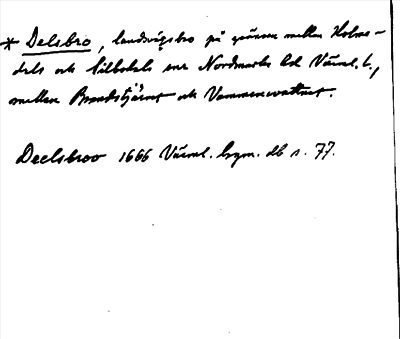 * Delsbro, landsvägsbro på gränsen mellan Holme-
dals och Silbodals snr Nordmarks hd Värml. l.,
mellan Brandstjärnet och Vammenvattnet.
Deelsbroo 1666 Värml. bygn. db s. 77.